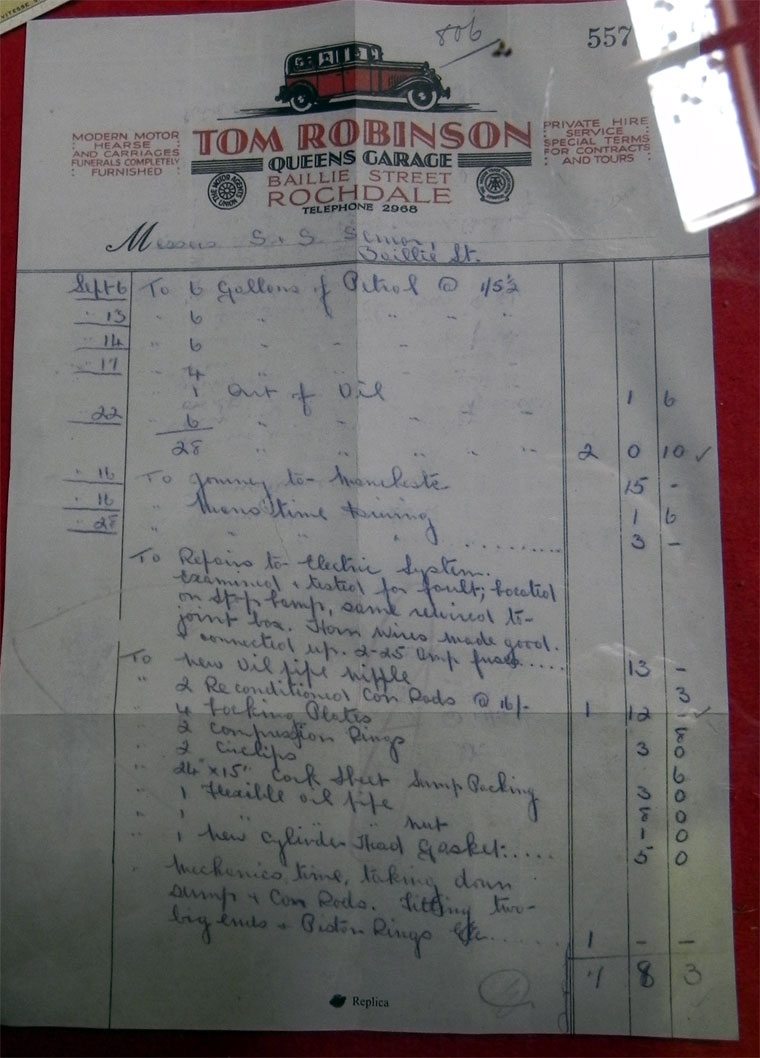 VITESSE
806
557
MODERN MOTOR
HEARSE
AND CARRIAGES
FUNERALS COMPLETELY
FURNISHED
TOM ROBINSON
QUEENS GARAGE
BAILLIE STREET
ROCHDALE
TELEPHONE 2968
THE MOTOR AGENTS UNION
PRIVATE HIRE
SERVICE
SPECIAL TERMS
FOR CONTRACTS
AND TOURS
Messrs S. & S. Senior,
Baillie St.
Sept 6 To 6 Gallons of Petrol @ 1/5½
" 13 " 6 " " " "
" 14 " 6 " - - -
" 17 " 4 " - - -
" 1 Qrt of Oil 1 6
" 22 " 6 " " - - -
28 " " " " " " 2 0 10 ✓
" 16 To Journey to Manchester 15 -
" 16 " Mans time driving 1 6
" 28 " " " " .......... 3 -
To Repairs to Electric System.
Examined & tested for fault; located
on stop lamp, same rewired to
joint box. Horn wires made good.
& connected up. 2-25 amp fuses..... 13 -
To new oil pipe nipple 3
" 2 Reconditioned Con Rods @ 16/- 1 12 - ✓
" 4 Locking Plates 8
" 2 Compression Rings 3 0
" 2 Circlips 6
" 24" x 15" Cork Sheet Sump Packing 3 0
" 1 Flexible oil pipe 8 0
" 1 " " nut 1 0
" 1 new Cylinder Head Gasket..... 5 0
Mechanics time, taking down
sump & Con Rods. Fitting two
big ends & Piston Rings &c....... 1 - -
7 8 3
Replica